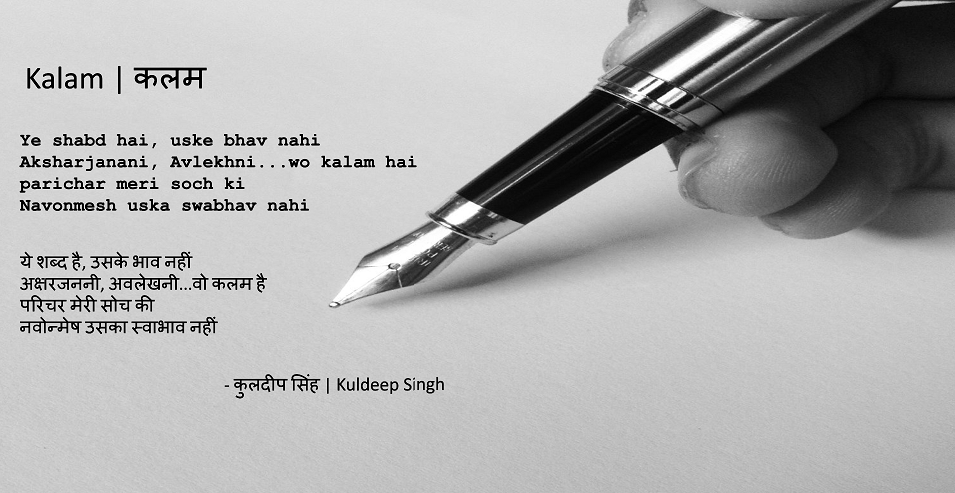 Kalam | कलम
Ye shabd hai, uske bhav nahi
Aksharjanani, Avlekhni...wo kalam hai
parichar meri soch ki
Navonmesh uska swabhav nahi
ये शब्द है, उसके भाव नहीं
अक्षरजननी, अवलेखनी...वो कलम है
परिचर मेरी सोच की
नवोन्मेष उसका स्वाभाव नहीं
- कुलदीप सिंह | Kuldeep Singh